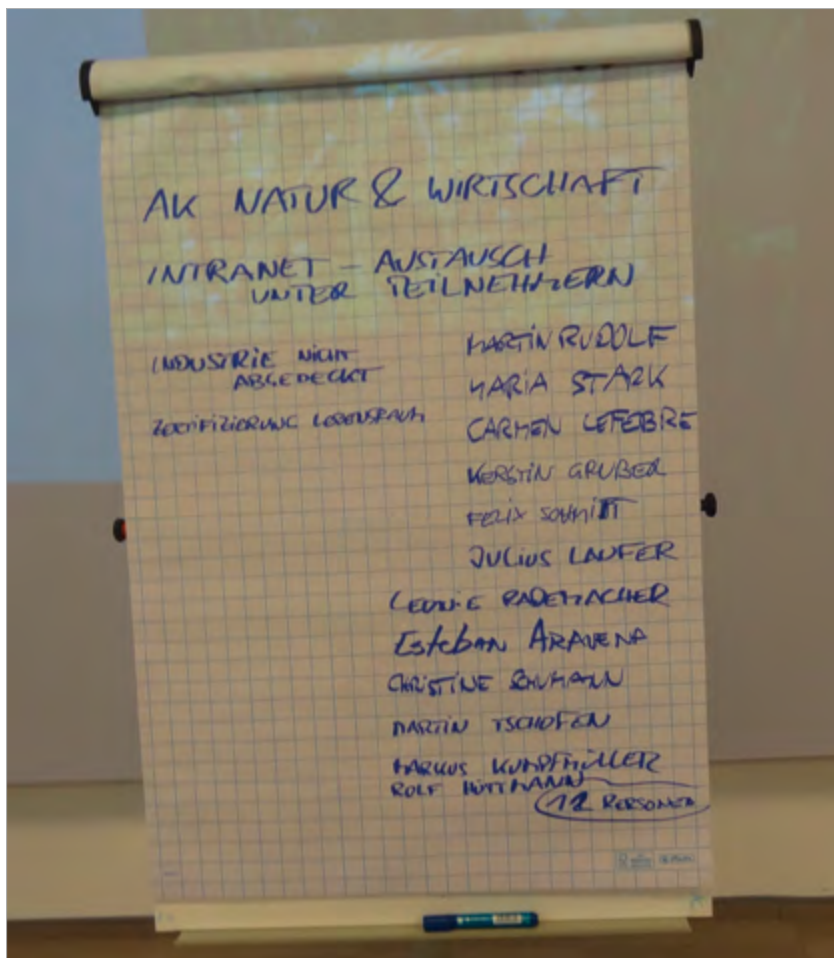 AK NATUR & WIRTSCHAFT
INTRANET – AUSTAUSCH
UNTER TEILNEHMERN
INDUSTRIE NICHT
ABGEDECKT
ZERTIFIZIERUNG LEBENSRAUM
MARTIN RUDOLF
MARIA STARK
CARMEN LEFEBRE
KERSTIN GRUBER
FELIX SCHMITT
JULIUS LAUFER
LEONIE RADEMACHER
Esteban ARAVENA
CHRISTINE SCHUMANN
MARTIN TSCHOFEN
MARKUS KUMPFMÜLLER
ROLF HÜTTMANN
12 PERSONEN